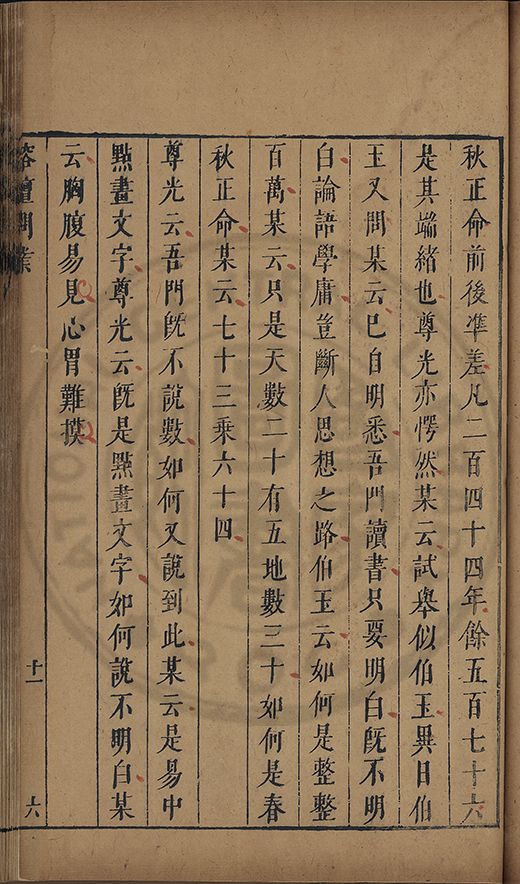 秋正命前後準差凡二百四十四年餘五百七十六
是其端緒也尊光亦愕然某云試舉似伯玉異日伯
玉又問某云巳自明悉吾門讀書只要明白旣不明
白論語學庸豈斷人思想之路伯玉云如何是整整
百萬某云只是天數二十有五地數三十如何是春
秋正命某云七十三乘六十四
尊光云吾門旣不說數如何又說到此某云是易中
點畫文字尊光云旣是點畫文字如何說不明白某
云胸腹易見心胃難摸
榕壇問業
十一
六